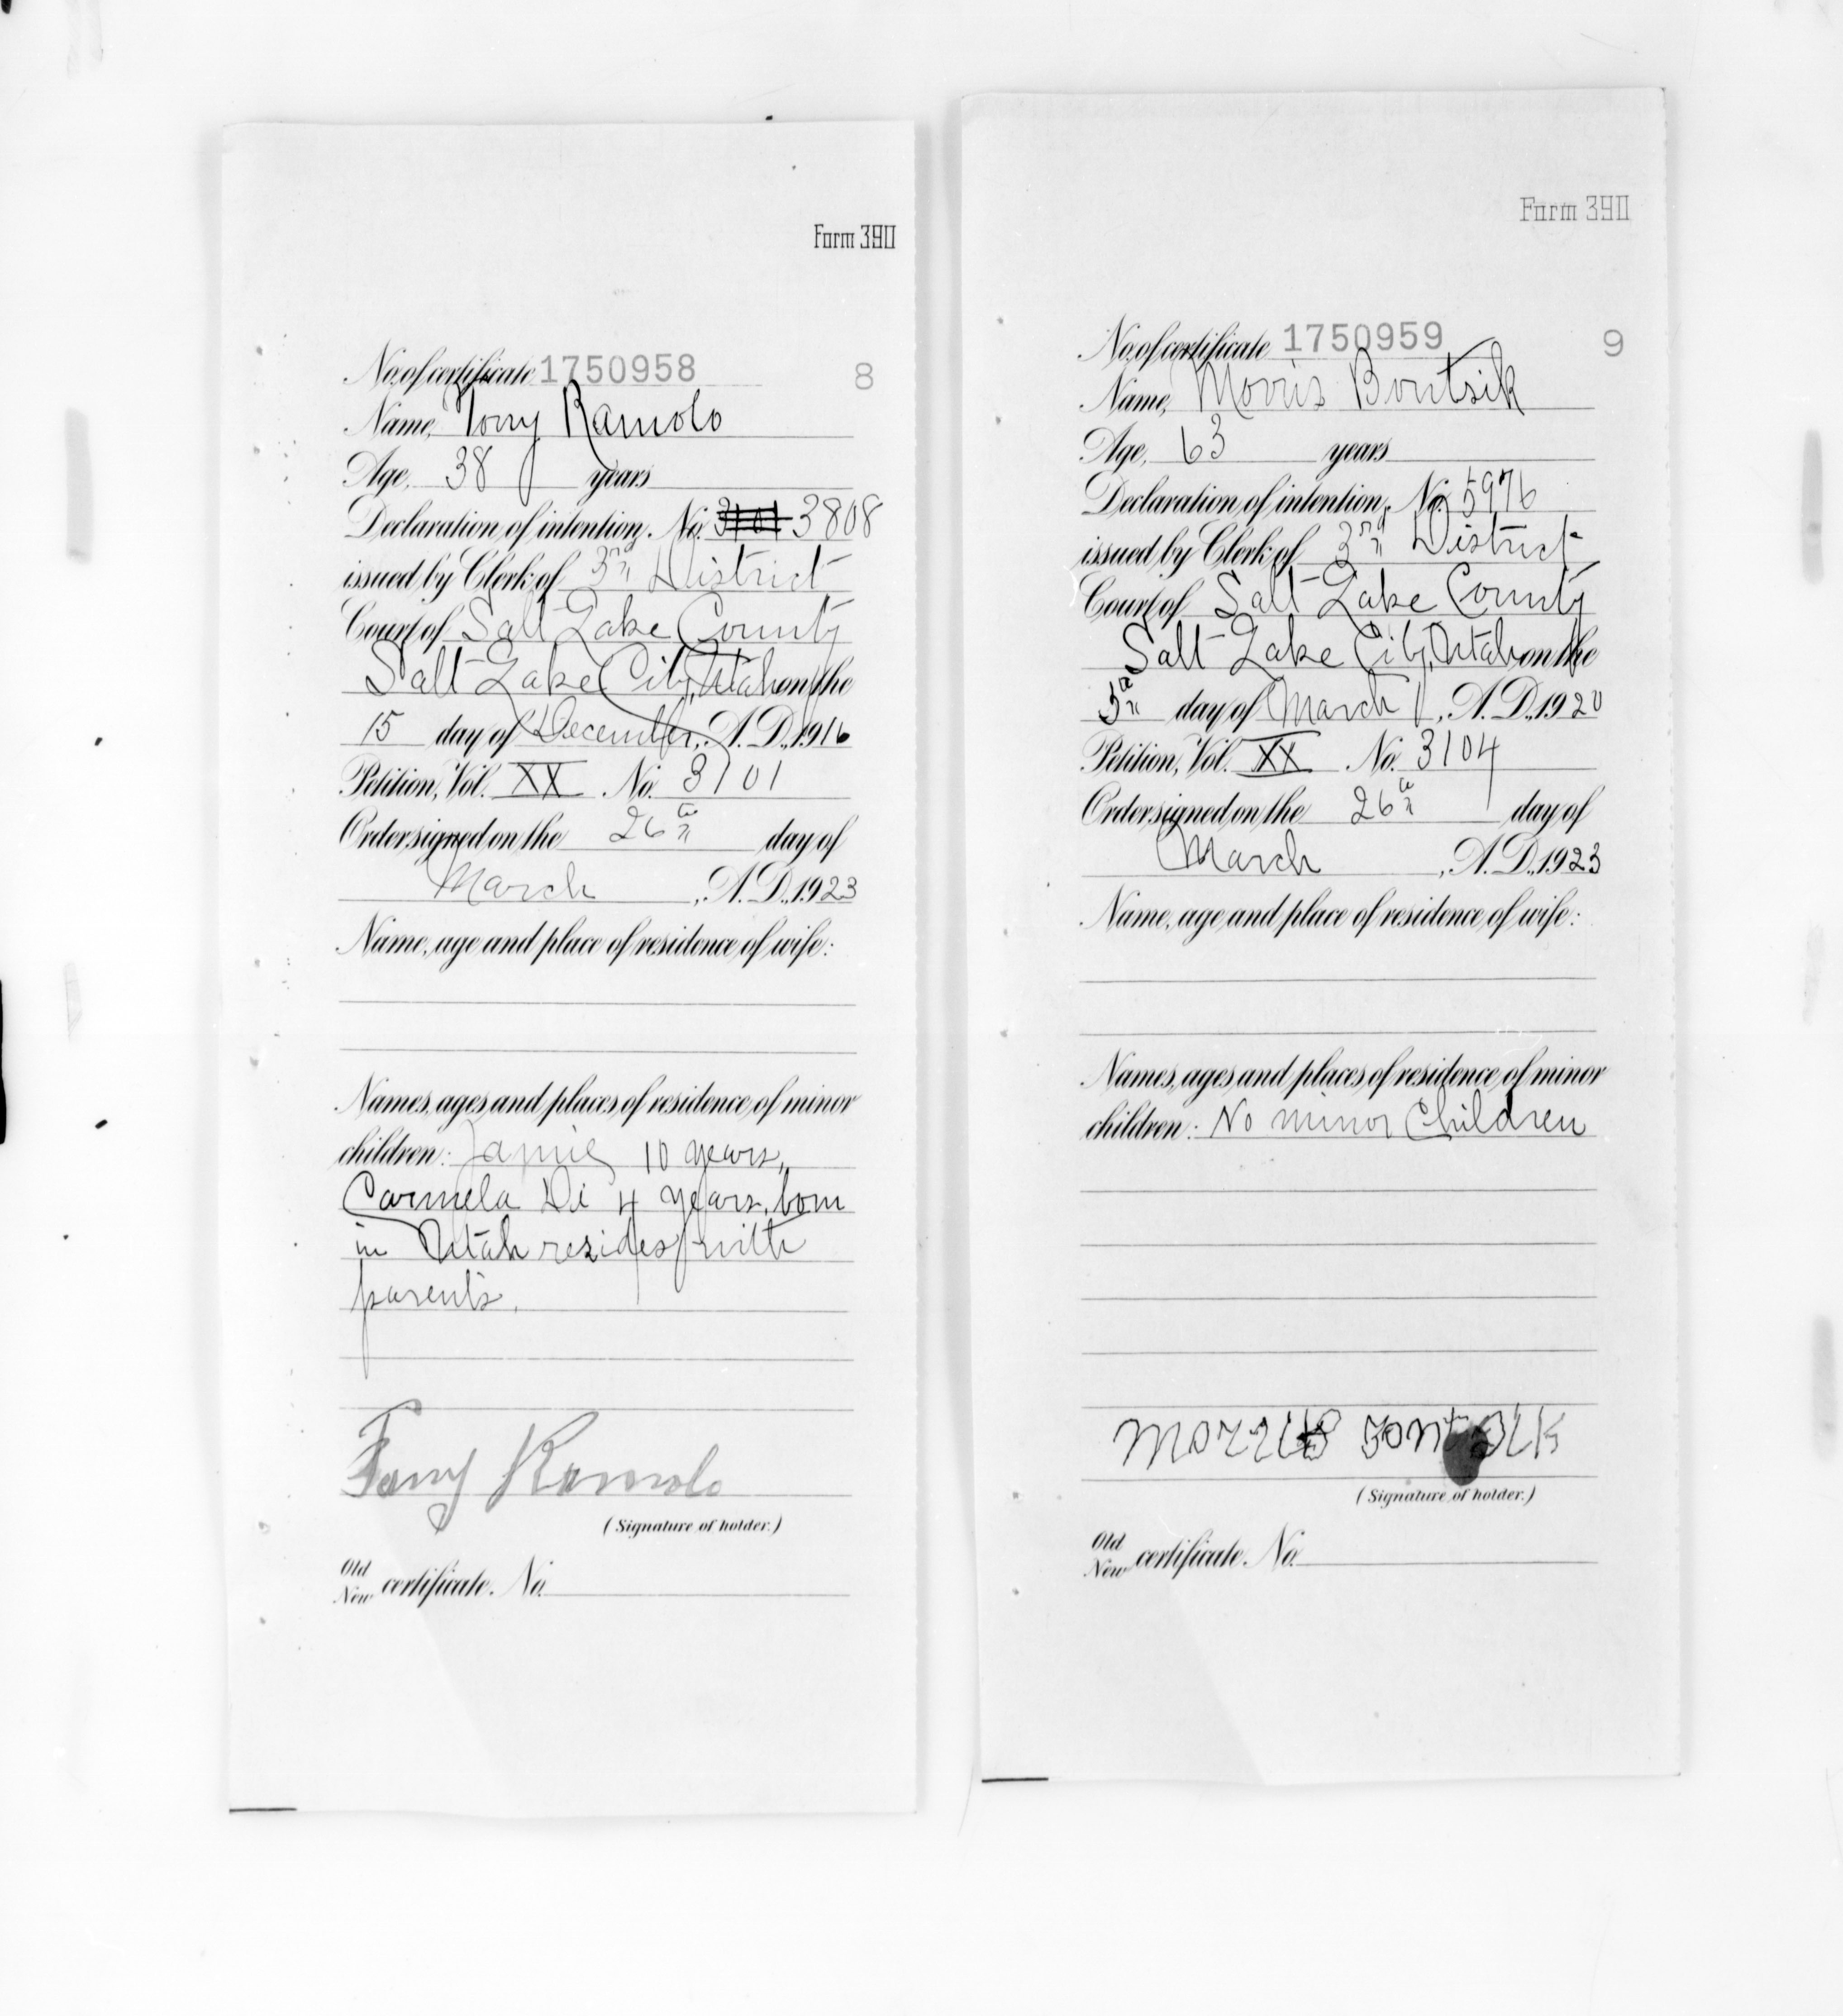 Form 390
No. of certificate 1750958 8
Name, Tony Ramolo
Age, 38 years
Declaration of intention, No. 3101 3808
issued by Clerk of 3rd District
Court of Salt Lake County
Salt Lake City, Utah on the
15 day of December, A.D., 1916
Petition, Vol. XX No. 3101
Order signed on the 26th day of
March, A.D., 1923
Name, age and place of residence of wife:
Names, ages and places of residence of minor
children: 10 years,
Carmela Di 4 years, born
in Utah resides with
parents.
Tony Romolo
(Signature of holder.)
Old
New certificate. No.
Form 390
No. of certificate 1750959 9
Name, Morris Bontsik
Age, 63 years
Declaration of intention, No. 5976
issued by Clerk of 3rd District
Court of Salt Lake County
Salt Lake City, Utah on the
5th day of March, A.D., 1920
Petition, Vol. XX No. 3104
Order signed on the 26th day of
March, A.D., 1923
Name, age and place of residence of wife:
Names, ages and places of residence of minor
children: No minor Children
(Signature of holder.)
Old
New certificate. No.